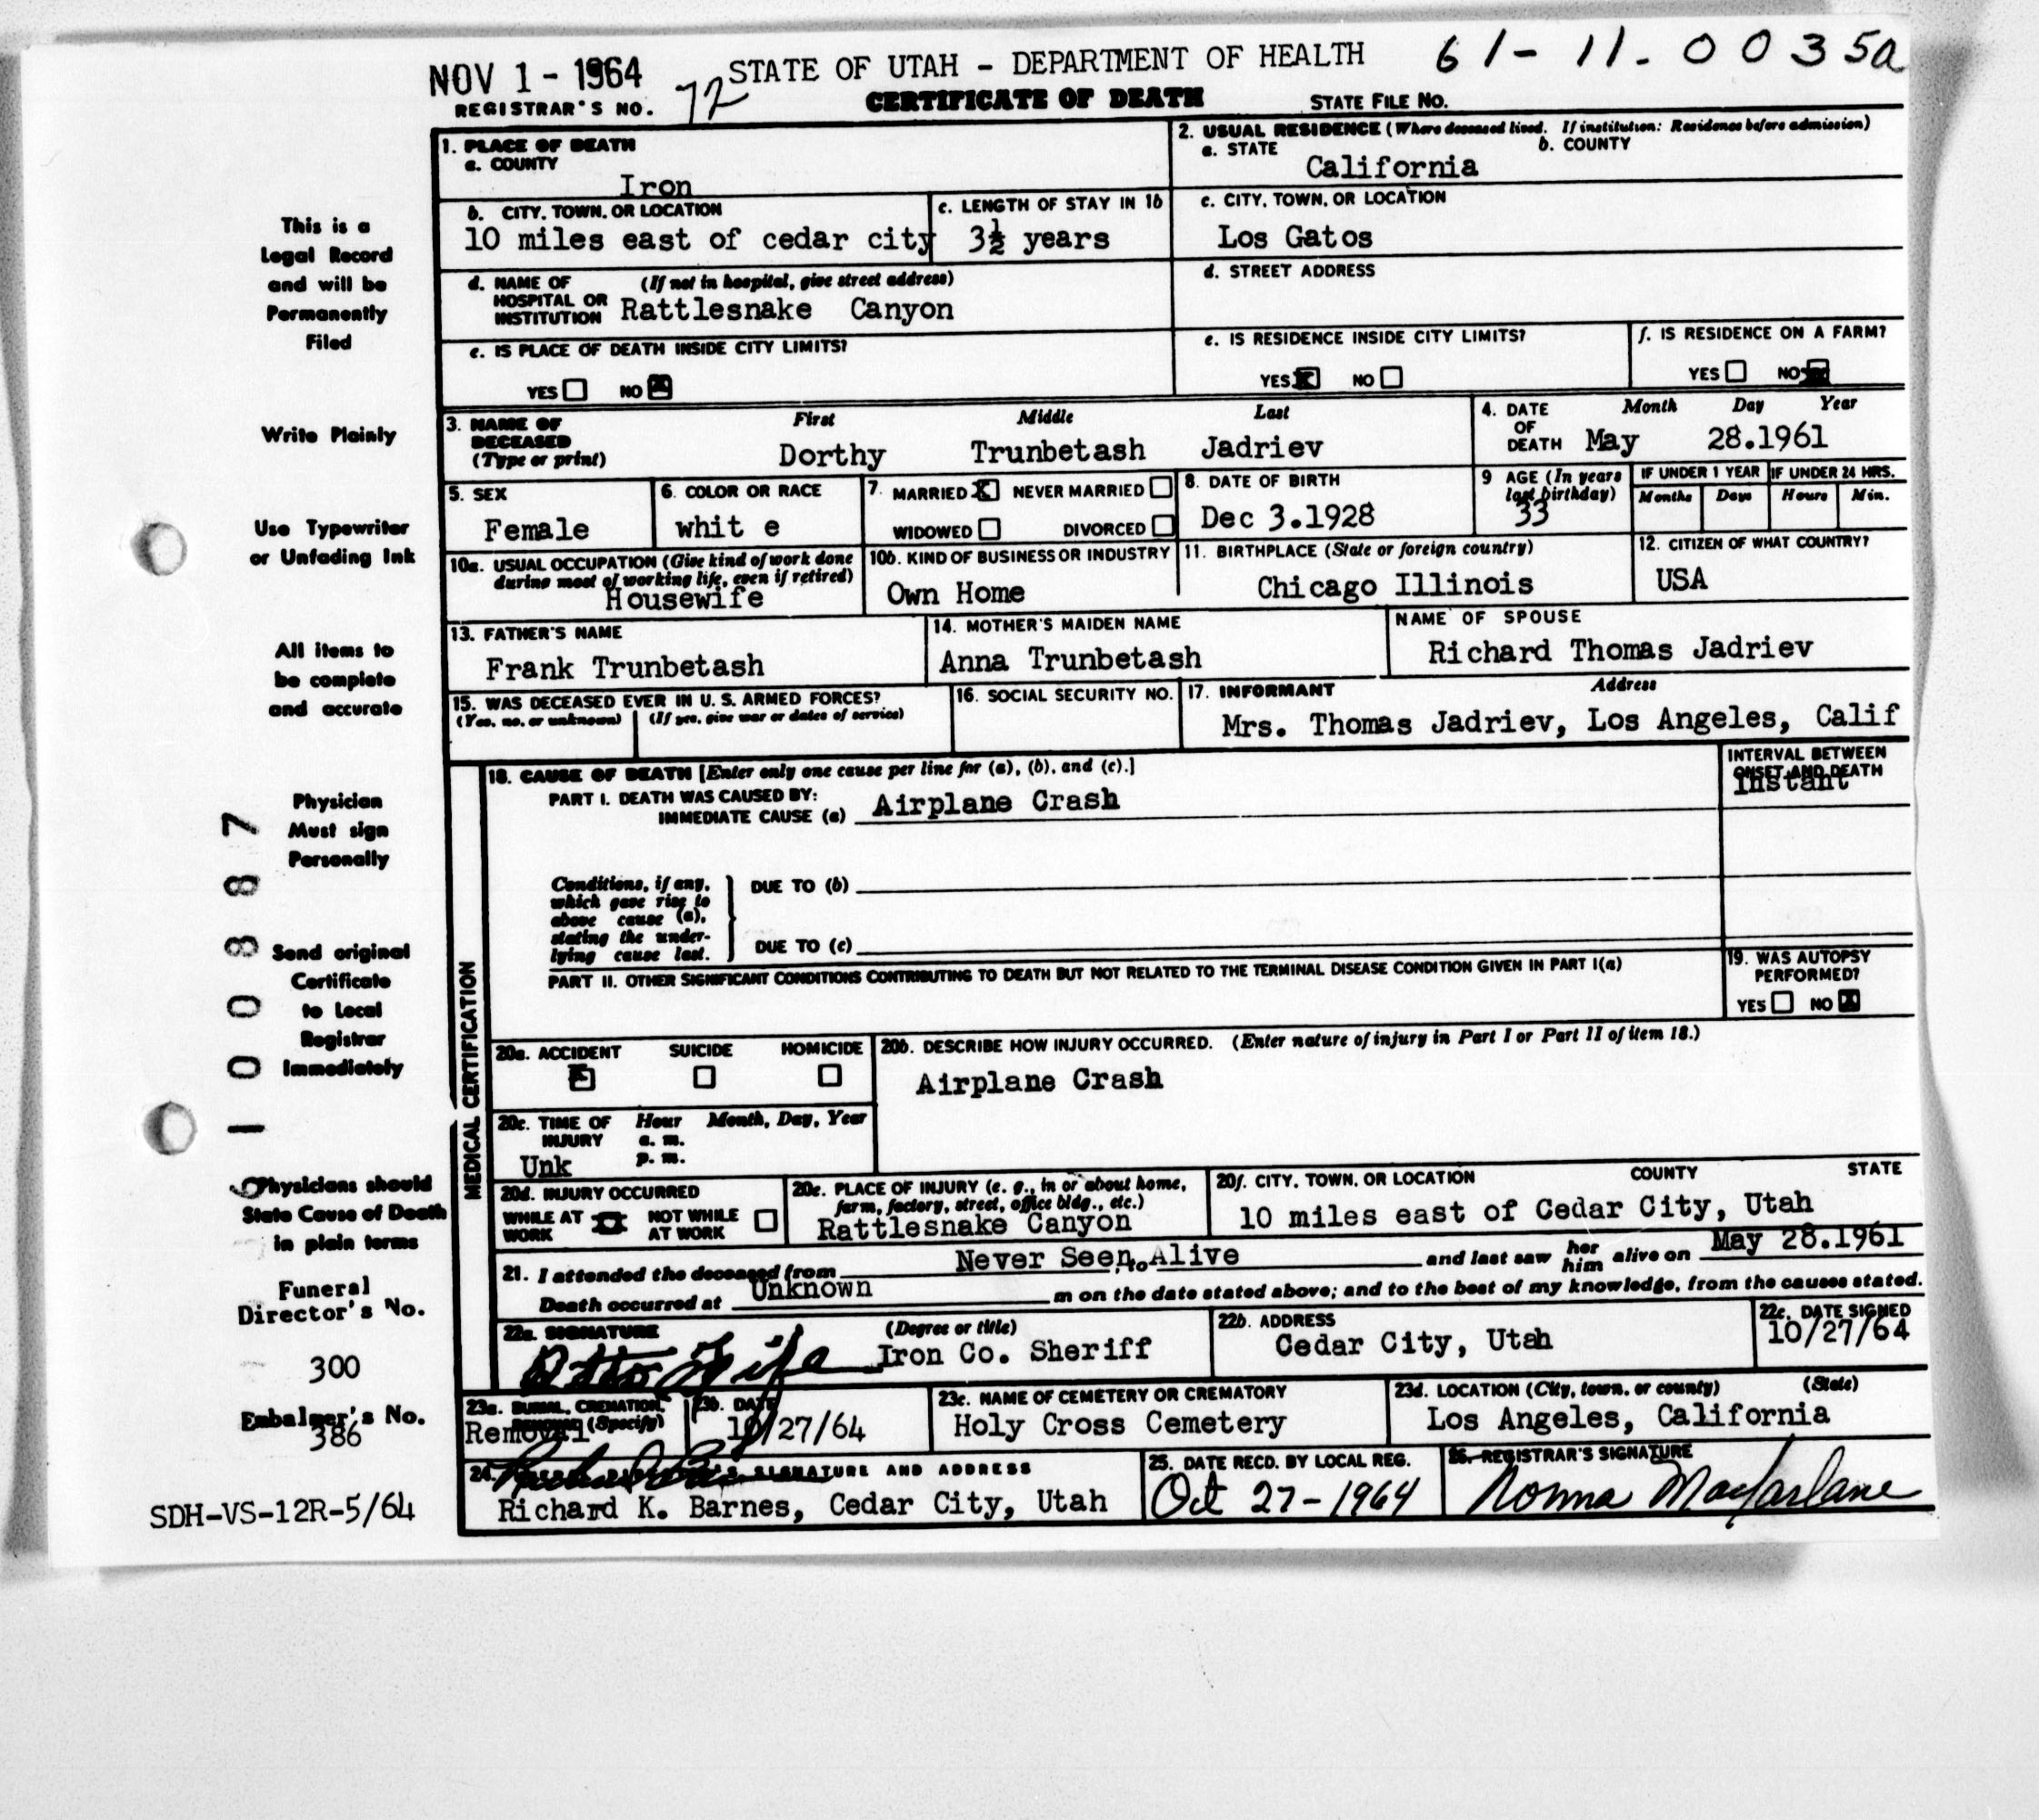 NOV 1 - 1964
STATE OF UTAH - DEPARTMENT OF HEALTH
61-11.0035a
REGISTRAR'S NO. 72
CERTIFICATE OF DEATH
STATE FILE NO.
This is a
Legal Record
and will be
Permanently
Filed
Write Plainly
Use Typewriter
or Unfading Ink
All items to
be complete
and accurate
Physician
Must sign
Personally
Send original
Certificate
to Local
Registrar
Immediately
Physicians should
State Cause of Death
in plain terms
Funeral
Director's No.
300
Embalmer's No.
386
SDH-VS-12R-5/64
1 0 0 8 8 7
1. PLACE OF DEATH
a. COUNTY
Iron
2. USUAL RESIDENCE (Where deceased lived. If institution: Residence before admission)
a. STATE
California
b. COUNTY
b. CITY, TOWN, OR LOCATION
10 miles east of cedar city
c. LENGTH OF STAY IN 1b
3½ years
c. CITY, TOWN, OR LOCATION
Los Gatos
d. NAME OF (If not in hospital, give street address)
HOSPITAL OR
INSTITUTION Rattlesnake Canyon
d. STREET ADDRESS
e. IS PLACE OF DEATH INSIDE CITY LIMITS?
YES NO X
e. IS RESIDENCE INSIDE CITY LIMITS?
YES X NO
f. IS RESIDENCE ON A FARM?
YES NO X
3. NAME OF
DECEASED
(Type or print)
First Middle Last
Dorthy Trunbetash Jadriev
4. DATE
OF
DEATH
Month Day Year
May 28.1961
5. SEX
Female
6. COLOR OR RACE
whit e
7. MARRIED X NEVER MARRIED
WIDOWED DIVORCED
8. DATE OF BIRTH
Dec 3.1928
9 AGE (In years
last birthday)
33
IF UNDER 1 YEAR
Months Days
IF UNDER 24 HRS.
Hours Min.
10a. USUAL OCCUPATION (Give kind of work done
during most of working life, even if retired)
Housewife
10b. KIND OF BUSINESS OR INDUSTRY
Own Home
11. BIRTHPLACE (State or foreign country)
Chicago Illinois
12. CITIZEN OF WHAT COUNTRY?
USA
13. FATHER'S NAME
Frank Trunbetash
14. MOTHER'S MAIDEN NAME
Anna Trunbetash
NAME OF SPOUSE
Richard Thomas Jadriev
15. WAS DECEASED EVER IN U. S. ARMED FORCES?
(Yes, no, or unknown) (If yes, give war or dates of service)
16. SOCIAL SECURITY NO.
17. INFORMANT Address
Mrs. Thomas Jadriev, Los Angeles, Calif
MEDICAL CERTIFICATION
18. CAUSE OF DEATH [Enter only one cause per line for (a), (b), and (c).]
PART I. DEATH WAS CAUSED BY:
IMMEDIATE CAUSE (a) Airplane Crash
INTERVAL BETWEEN
ONSET AND DEATH
Instant
Conditions, if any,
which gave rise to
above cause (a),
stating the under-
lying cause last.
DUE TO (b)
DUE TO (c)
PART II. OTHER SIGNIFICANT CONDITIONS CONTRIBUTING TO DEATH BUT NOT RELATED TO THE TERMINAL DISEASE CONDITION GIVEN IN PART I(a)
19. WAS AUTOPSY
PERFORMED?
YES NO X
20a. ACCIDENT SUICIDE HOMICIDE
X
20b. DESCRIBE HOW INJURY OCCURRED. (Enter nature of injury in Part I or Part II of item 18.)
Airplane Crash
20c. TIME OF Hour Month, Day, Year
INJURY a. m.
p. m.
Unk
20d. INJURY OCCURRED
WHILE AT NOT WHILE
WORK AT WORK
20e. PLACE OF INJURY (e. g., in or about home,
farm, factory, street, office bldg., etc.)
Rattlesnake Canyon
20f. CITY, TOWN, OR LOCATION COUNTY STATE
10 miles east of Cedar City, Utah
21. I attended the deceased from Never Seen, to Alive and last saw her him alive on May 28.1961
Death occurred at Unknown m on the date stated above; and to the best of my knowledge, from the causes stated.
22a. SIGNATURE (Degree or title)
Otto Fife Iron Co. Sheriff
22b. ADDRESS
Cedar City, Utah
22c. DATE SIGNED
10/27/64
23a. BURIAL, CREMATION,
REMOVAL (Specify)
Removal
23b. DATE
10/27/64
23c. NAME OF CEMETERY OR CREMATORY
Holy Cross Cemetery
23d. LOCATION (City, town, or county) (State)
Los Angeles, California
24. SIGNATURE AND ADDRESS
Richard K. Barnes, Cedar City, Utah
25. DATE RECD. BY LOCAL REG.
Oct 27-1964
26. REGISTRAR'S SIGNATURE
Norma Macfarlane